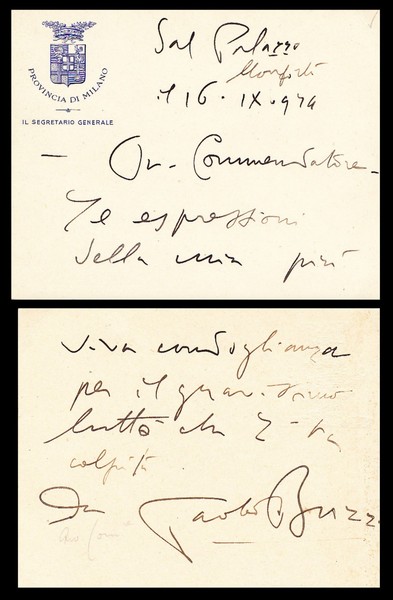 PROVINCIA DI MILANO
IL SEGRETARIO GENERALE
Dal Palazzo
Monforte
il 16. IX. 934
— On. Commendatore —
Le espressioni
della mia più
viva condoglianza
per il gravissimo
lutto che L'ha
colpita.
Paolo Buzzi